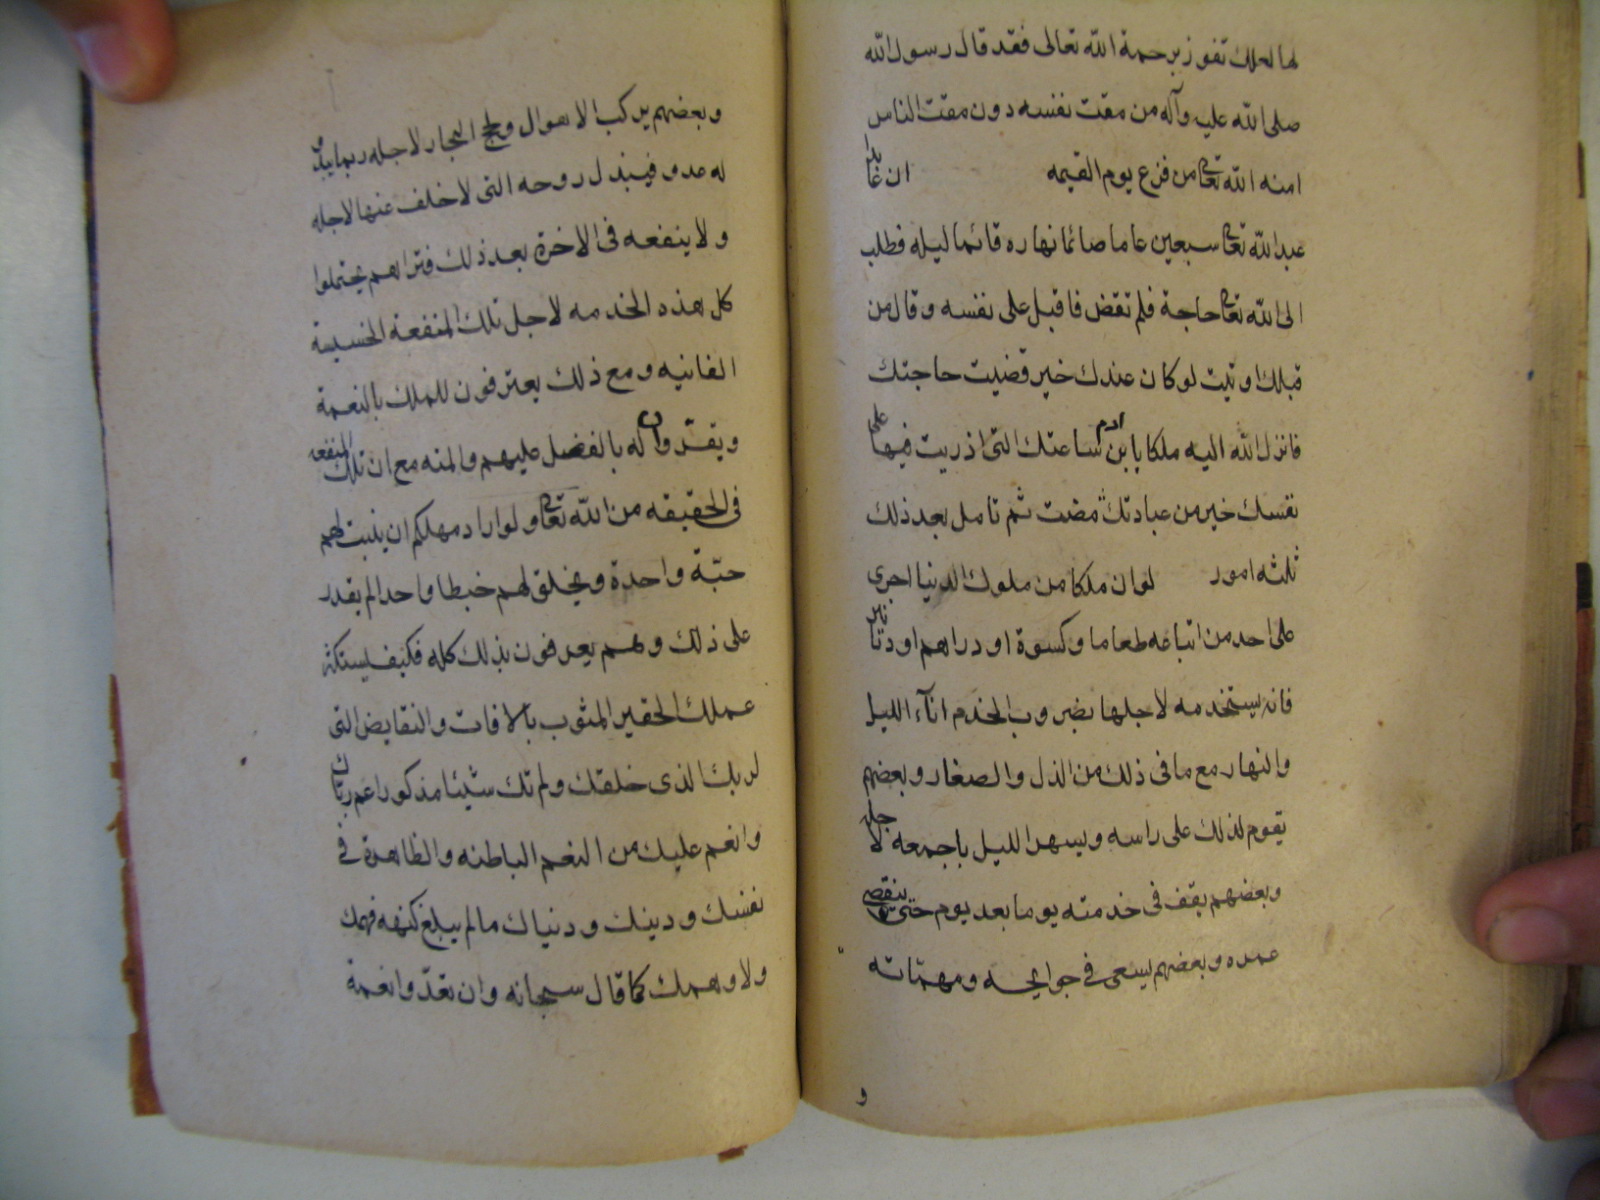 لها لعلك تفوز برحمة الله تعالى فقد قال رسول الله
صلى الله عليه وآله من مقت نفسه دون مقت الناس
امنه الله تعالى من فزع يوم القيمه ان عابدا
عبد الله تعالى سبعين عاما صائما نهاره قائما ليله فطلب
الى الله تعالى حاجة فلم تقض فاقبل على نفسه وقال من
قبلك اوتيت لو كان عندك خير قضيت حاجتك
فانزل الله اليه ملكا يا ابن ادم ساعتك التى ازريت فيها على
نفسك خير من عبادتك مضت ثم تامل بعد ذلك
ثلثه امور لو ان ملكا من ملوك الدنيا اجرى
على احد من اتباعه طعاما وكسوة او دراهم او دنانير
فانه يستخدمه لاجلها بضروب الخدم اناء الليل
والنهار مع ما فى ذلك من الذل والصغار وبعضهم
يقوم لذلك على راسه ويسهر الليل باجمعه لاجله
وبعضهم يقف فى خدمته يوما بعد يوم حتى ينقضى
عمره وبعضهم يسعى فى حوايجه ومهماته
و
وبعضهم يركب الاهوال ولجج البحار لاجله ربما يبدو
له عدو فيبذل روحه التى لا خلف عنها لاجله
ولا ينفعه فى الاخرة بعد ذلك فتراهم يحتملوا
كل هذه الخدمه لاجل تلك المنفعة الخسيسة
الفانيه ومع ذلك يعترفون للملك بالنعمة
ويقرون له بالفضل عليهم والمنه مع ان تلك المنفعه
فى الحقيقه من الله تعالى ولو اراد مهلكم ان ينبت لهم
حبّة واحدة ويخلق لهم خيطا واحدا لم يقدر
على ذلك وهم يعرفون بذلك كله فكيف يستكثر
عملك الحقير المشوب بالافات والنقايص التى
لربك الذى خلقك ولم تك شيئا مذكورا ثم رباك
وانعم عليك من النعم الباطنه والظاهرة فى
نفسك ودينك ودنياك ما لم يبلغ كنهه فهمك
ولا وهمك كما قال سبحانه وان تعدّوا نعمة